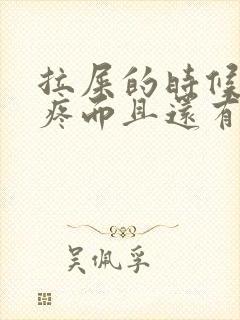 拉屎的時候
疼而且還有
吳佩孚